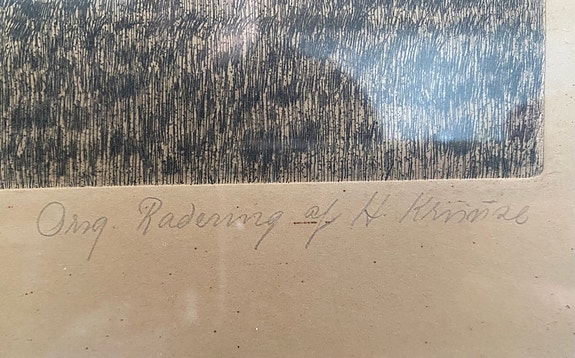 Orig. Radering af H. Kruuse